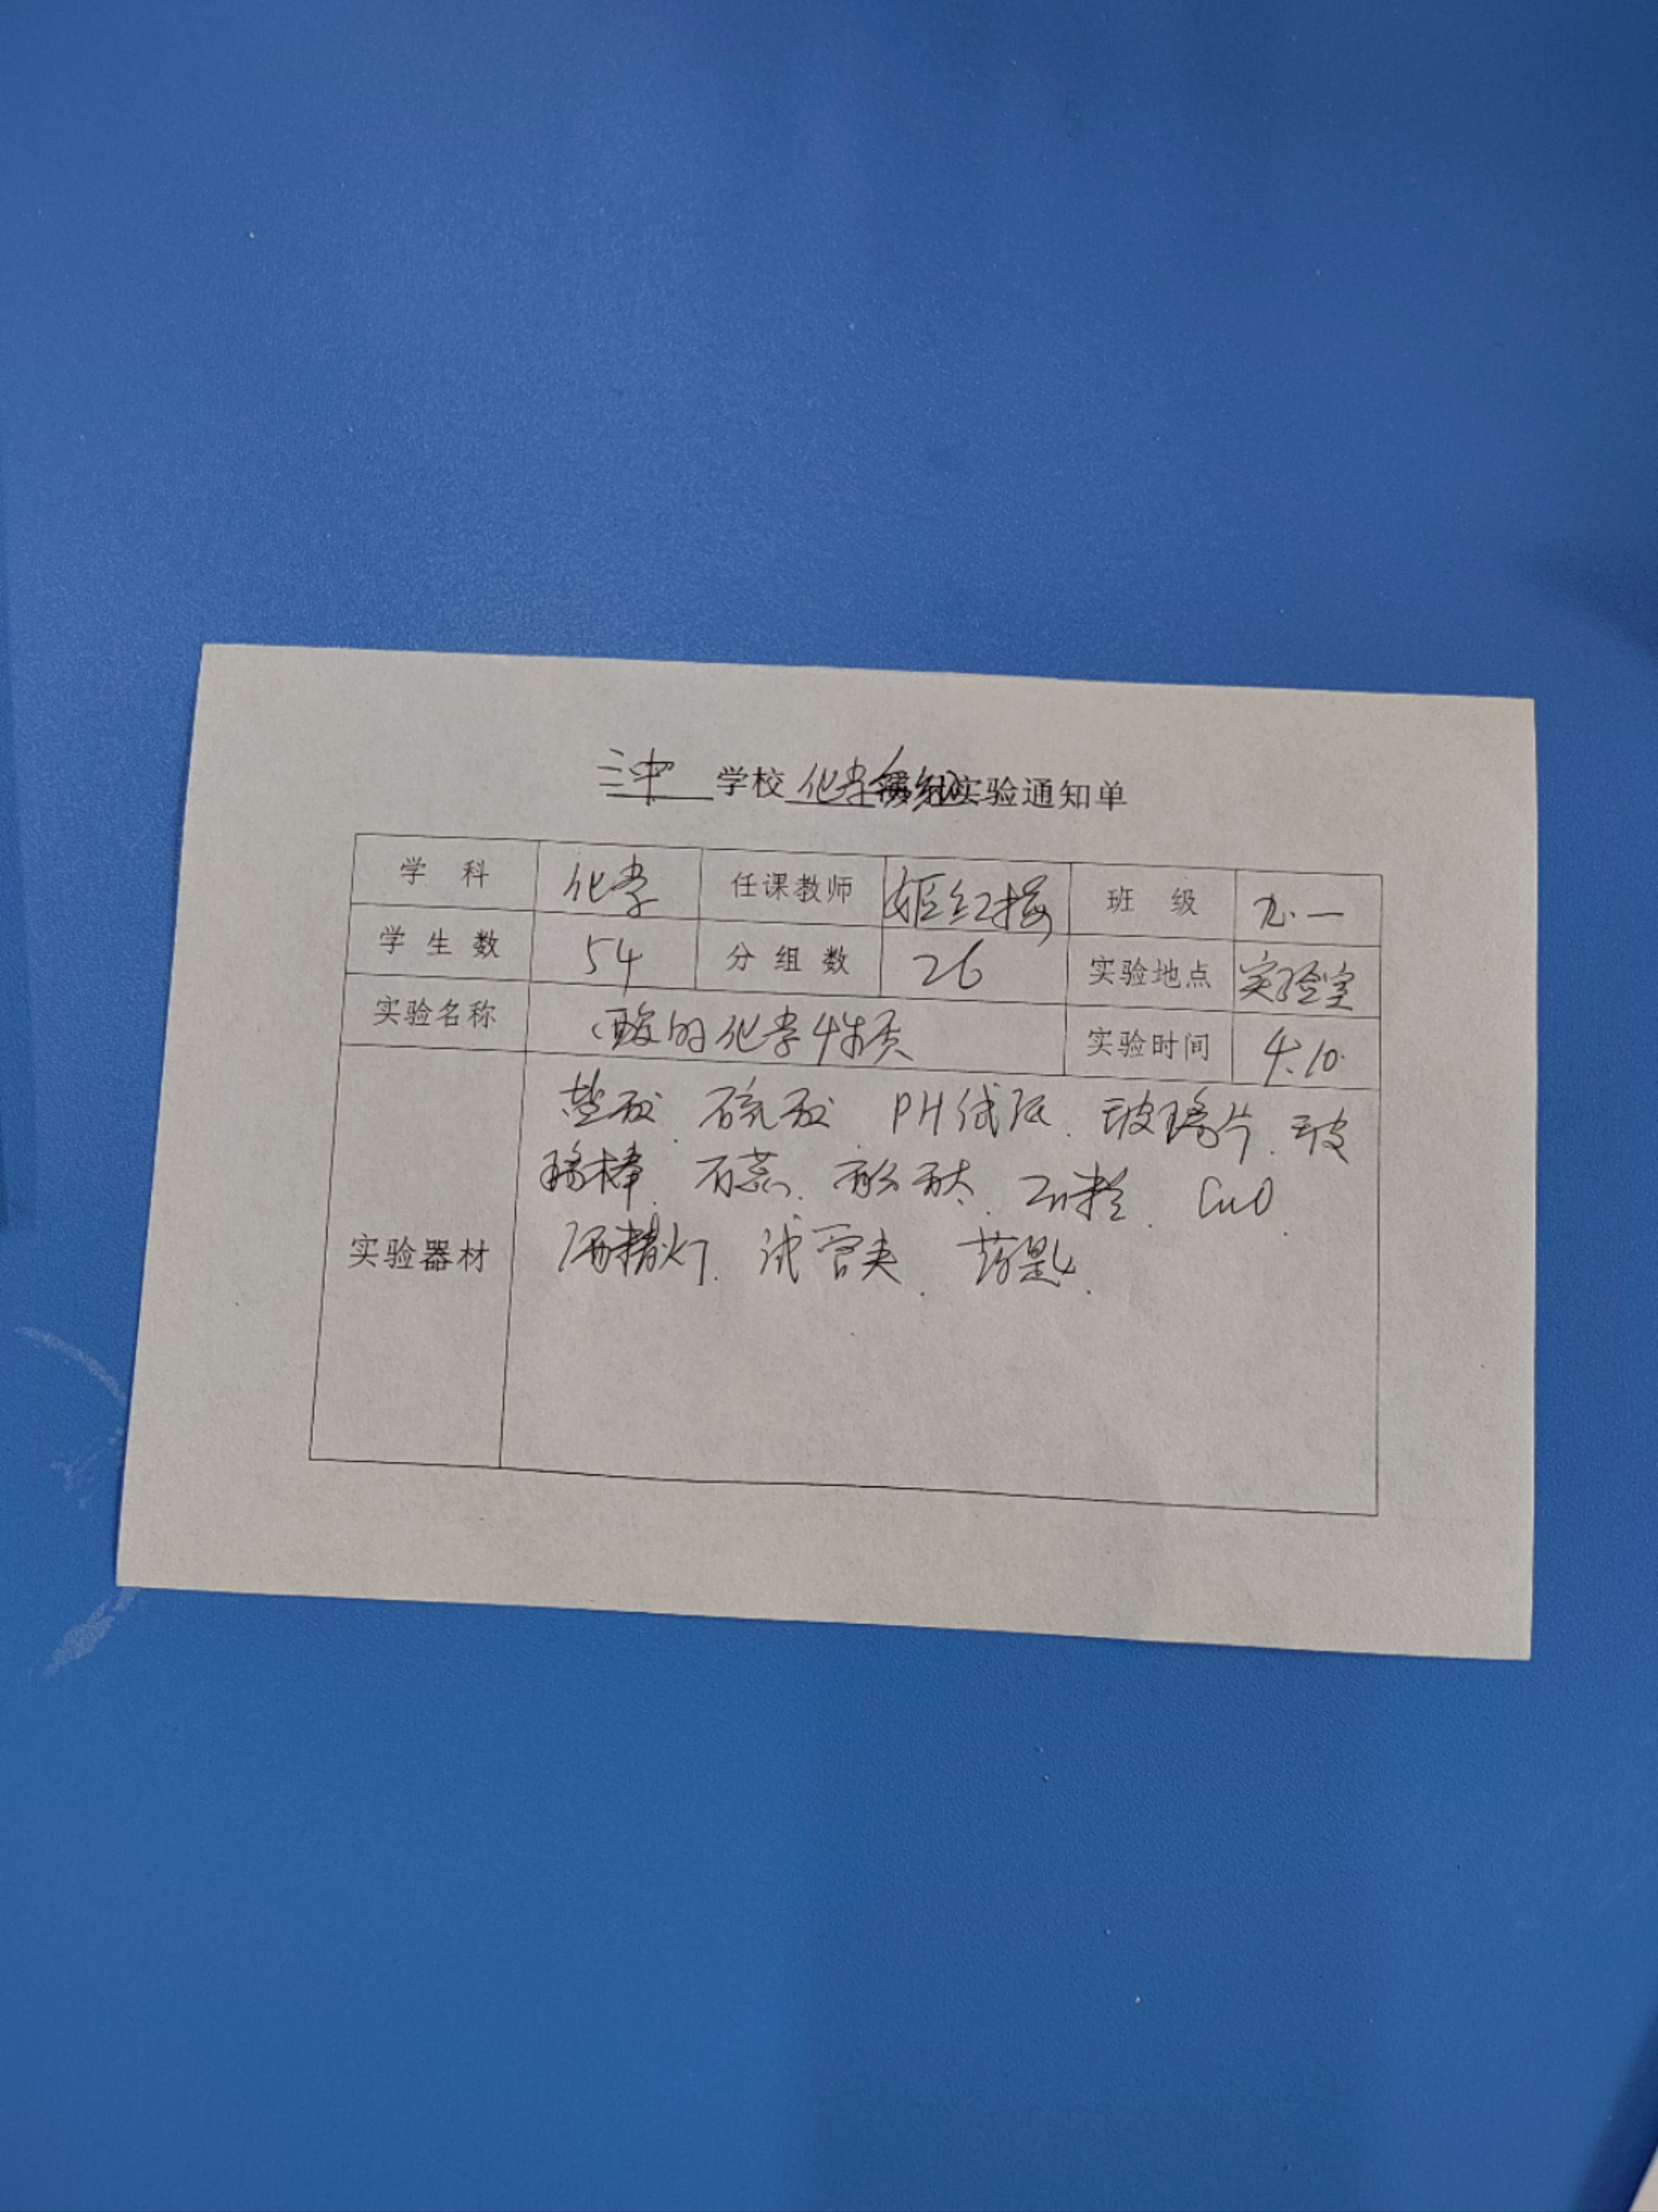 三中 学校 化学分组实验通知单
学 科 化学 任课教师 姬红梅 班 级 九.一
学 生 数 54 分 组 数 26 实验地点 实验室
实验名称 酸的化学性质 实验时间 4.10.
盐酸. 硫酸. PH试纸. 玻璃片. 玻
璃棒. 石蕊. 酚酞. Zn粒. CuO.
实验器材 酒精灯. 试管夹. 药匙.